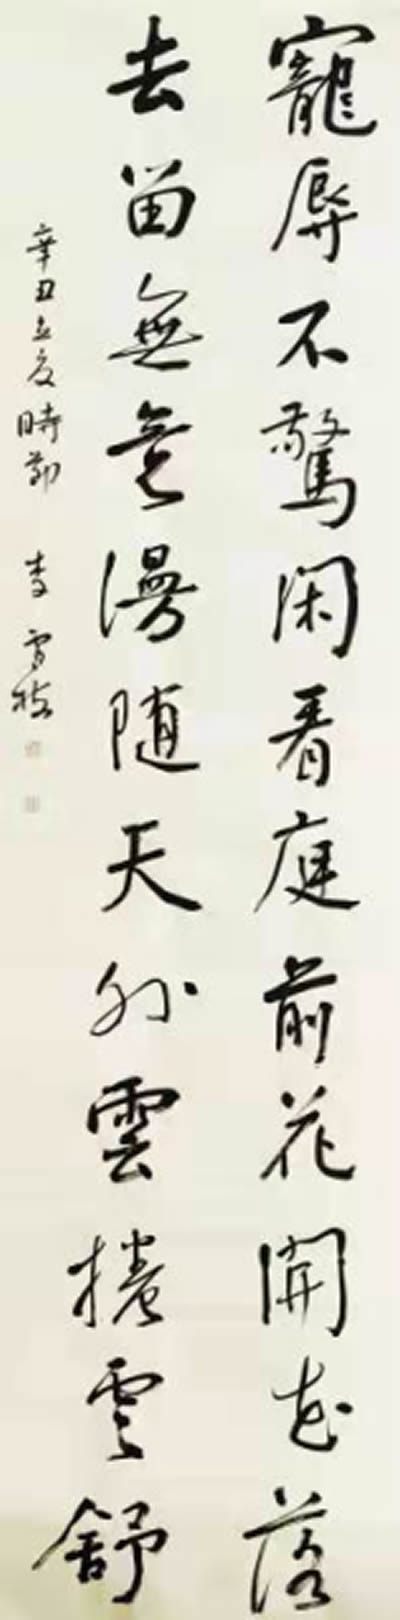 寵辱不驚閑看庭前花開花落
去留無意漫隨天外雲捲雲舒
辛丑立夏時節 李